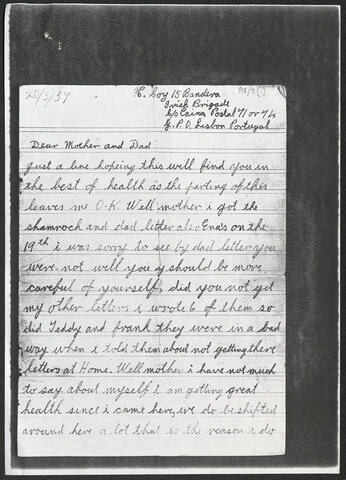 20/3/37
C. Coy 15 Bandera
Irish Brigade
C/o Caixa Postal 71 or 72
G.P.O. Lisbon Portugal
Dear Mother and Dad
just a line hopeing this will find you in
the best of health as the parting of this
leaves me O.K. Well mother i got the
shamrock and dad letter also Ena's on the
19th i was sorry to see by dad letter you
were not well you should be more
careful of yourself, did you not get
my other letters i wrote 6 of them so
did Teddy and frank they were in a bad
way when i told them about not getting there
letters at Home. Well mother i have not much
to say about myself i am getting great
health since i came here, we do be shifted
around here a lot that is the reason i do